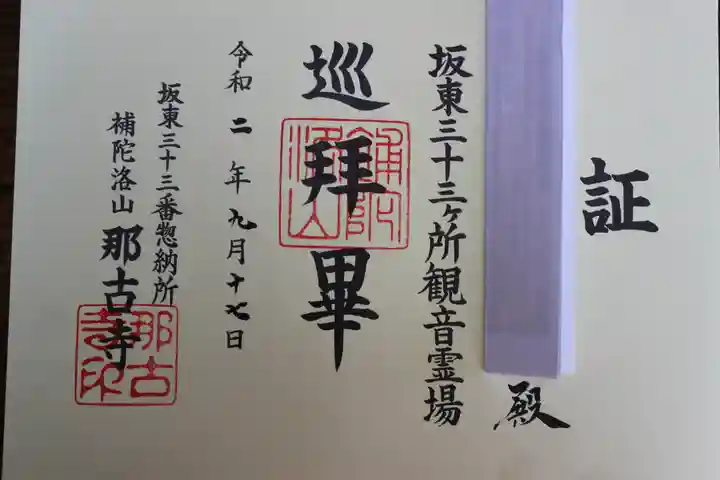 証
殿
坂東三十三ヶ所観音霊場
巡拝畢
補陀洛山
令和二年九月十七日
坂東三十三番惣納所
補陀洛山那古寺
那古寺印